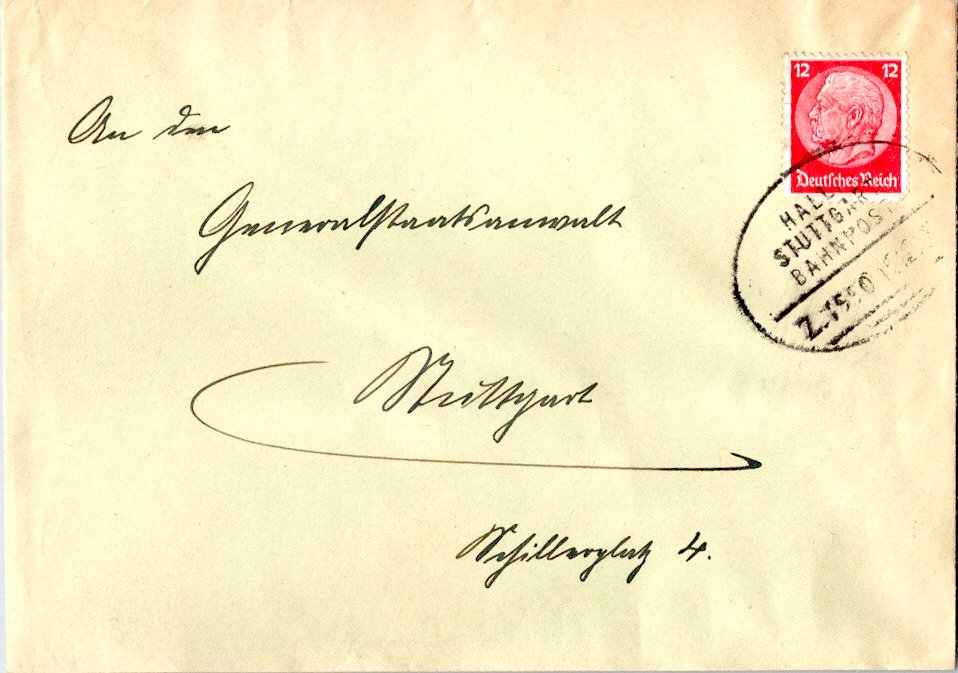 12 12
Deutsches Reich
HALL-
STUTTGART
BAHNPOST
Z.1550
An den
Generalstaatsanwalt
Stuttgart
Schillerplatz 4.